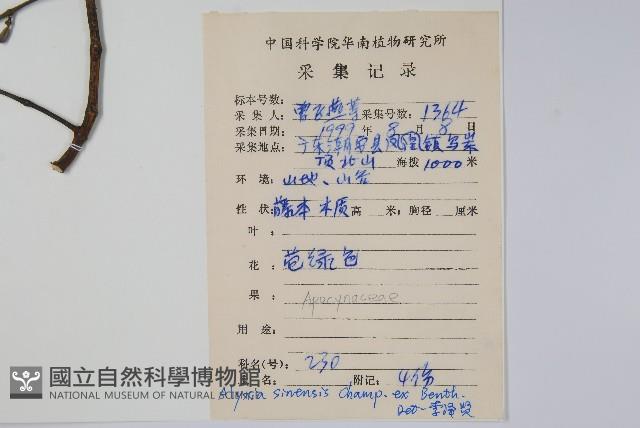 中国科学院华南植物研究所
采集记录
标本号数:
采集人: 曾飞燕等 采集号数: 1364
采集日期: 1999 年 8 月 8 日
采集地点: 广东潮安县凤凰镇乌岽
顶北山 海拨 1000 米
环境: 山地、山谷
性状: 藤本 木质 高 米; 胸径 厘米
叶:
花: 苞绿色
果: Apocynaceae
用途:
科名(号): 230
名: 附记: 4份
Alyxia sinensis Champ. ex Benth.
Det- 李泽贤
國立自然科學博物館
NATIONAL MUSEUM OF NATURAL